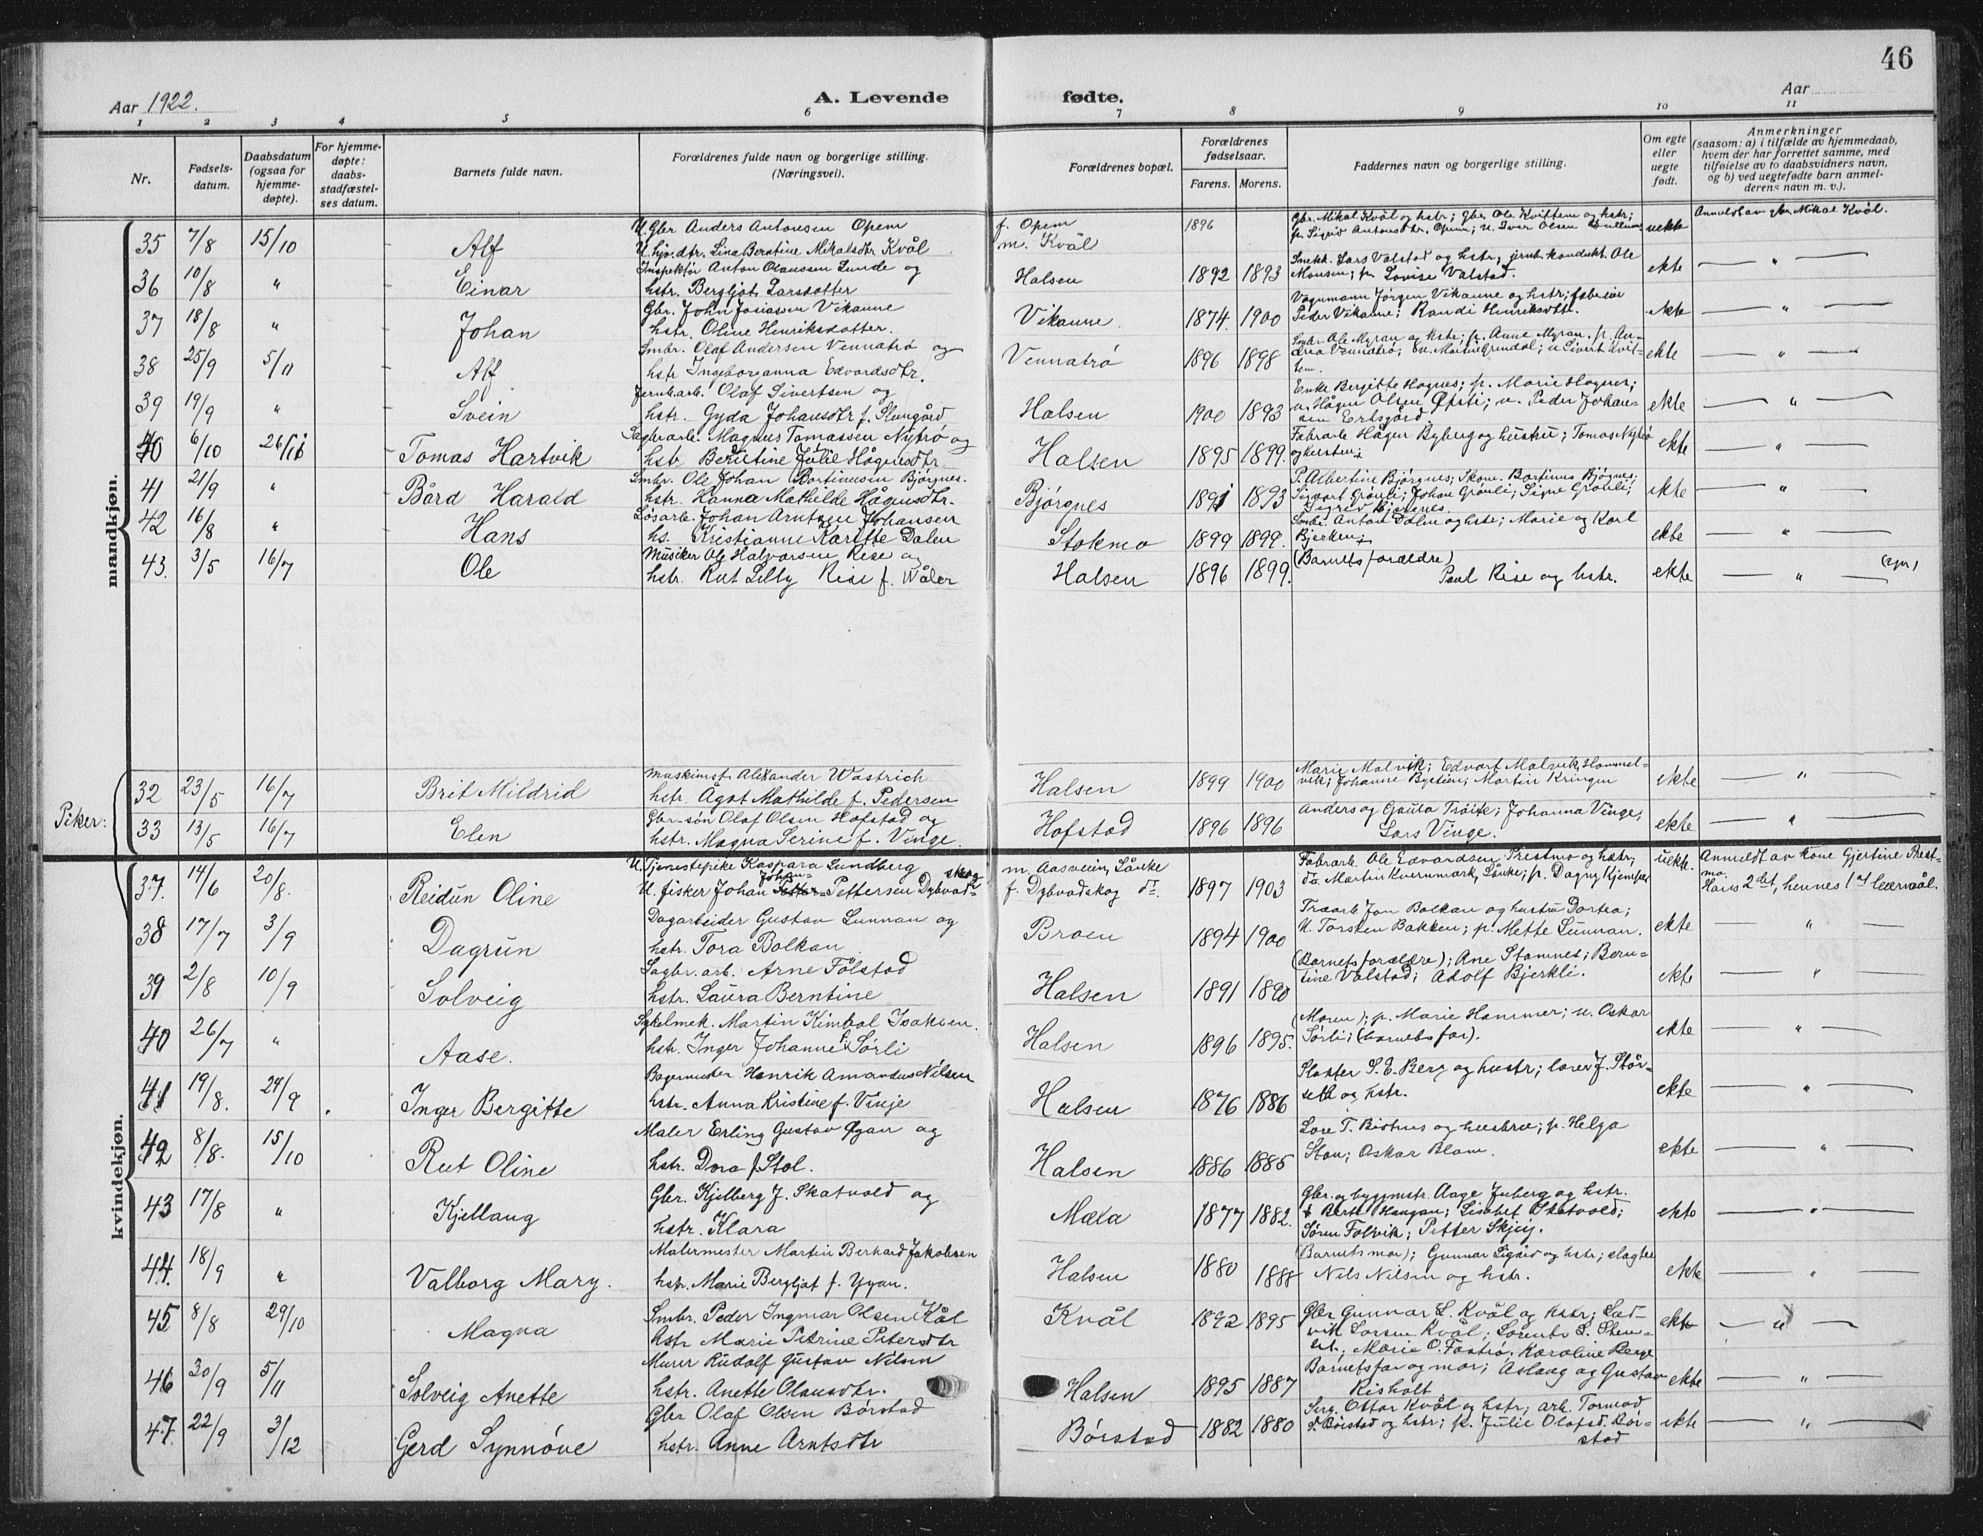 46
Aar 1922.
A. Levende fødte.
Aar
1 2 3 4 5 6 7 8 9 10 11
Nr.
Fødsels-
datum.
Daabsdatum
(ogsaa for
hjemme-
døpte).
For hjemme-
døpte:
daabs-
stadfæstel-
ses datum.
Barnets fulde navn.
Forældrenes fulde navn og borgerlige stilling.
(Næringsvei).
Forældrenes bopæl.
Forældrenes
fødselsaar.
Farens. Morens.
Faddernes navn og borgerlige stilling.
Om egte
eller
uegte
født.
Anmerkninger
(saasom: a) i tilfælde av hjemmedaab,
hvem der har forrettet samme, med
tilføielse av to daabsvidners navn,
og b) ved uegtefødte barn anmel-
derens navn m. v.).
mandkjøn.
35 7/8 15/10 Alf
U. Gbr Anders Antonsen Opem
U. hjv. dtr. Lina Berntine Mikalsdtr Kvål
f. Opem
m. Kvål
1896
Gbr. Mikal Kvål og hstr; gbr Ole Kvittem og hstr;
p. Sigrid Antonsdtr. Opem; u. Ivar Olsen
uekte
Anmeldt av gbr. Mikal Kvål.
36 10/8 " Einar
Inspektør Anton Olaussen Lunde og
hstr. Bergljot Larsdatter
Halsen 1892 1893
Smekk. Lars Valstad og hstr; jernb. kondukt. Ole
Monsen; p. Lovise Valstad.
ekte — " —
37 18/8 " Johan
Gbr. John Josiassen Vikanne
hstr. Oline Henriksdatter.
Vikanne. 1874. 1900
Vognmann Jørgen Vikanne og hstr; fabr.eier
Peder Vikanne; Randi Henriksdtr.
ekte — " —
38 25/9 5/11 Alf
Smbr. Olaf Andersen Vennatrø og
hstr Ingeborganna Edvardsdtr.
Vennatrø 1896 1898
Smbr. Ole Myran og hstr; p. Anne Myran, p. An-
drea Vennatrø; u. Martin Grendal; u Sivert Kvit-
tem.
ekte — " —
39 19/9 " Svein
Jernb.arb. Olaf Sivertsen og
hstr. Gyda Johansdtr f. Slungård
Halsen 1900 1893
Enke Bergitte Hognes; p. Marie Hognes;
u. Hågen Olsen Opsti; u. Peder Johan-
sen Ertsgård
ekte — " —
40 6/10 26/11 Tomas Hartvik
Sagbr.arb. Magnus Tomassen Nytrø og
hstr. Berntine Julie Hågensdtr
Halsen 1895 1899.
Fabr.arb. Hågen Byberg og hustru; Tomas Nytrø
og Kersten;
ekte — " —
41 21/9 " Bård Harald
Smbr. Ole Johan Bortinussen Bjørgnes.
hstr. Hanna Mathilde Hågensdtr.
Bjørgnes 1891 1893
P. Albertine Bjørgnes; Skom. Bortinus Bjøgnes;
Sigvart Grønli; Johan Grønli; Signe Grønli;
Sigrid Bjørgnes.
ekte — " —
42 16/8 " Hans
Løsarb. Johan Arntsen Johansen
hs. Kristianne Karette Dalen
Stokmo 1899 1899.
Smbr. Anton Dalen og hstr; Marie og Karl
Bjerken;
ekte — " —
43. 3/5 16/7 Ole
Musiker Ole Halvorsen Rise og
hstr. Rut Lilly Rise f. Wåler
Halsen 1896 1899.
(Barnets forældre)
Paul Rise og hstr.
ekte — " —
Piker:
32 23/5 16/7 Brit Mildrid
Maskinist Alexander Wastrich
hstr. Ågot Mathilde f. Pedersen
Halsen 1899 1900
Marie Malvik; Edvart Malvik, Hommel-
vik; Johanne Bysteen; Martin Kringen
ekte "
33 13/5 16/7 Elen
Gbr.-søn Olaf Olsen Hofstad og
hstr. Magna Serine f. Vinge.
Hofstad 1896 1896
Anders og Gauta Trøite; Johanna Vinge,
Lars Vinge.
ekte — " —
kvindekjøn.
37. 14/6 20/8. Reidun Oline
U. Tjenestepike Kaspara Sundberg
U. fisker Johan Petter Pettersen Dybvad- skog
m. Aasveien, Lånke
f. Dybvadskog
1897 1903
Fabr.arb. Ole Edvardsen Prestmo og hstr;
Martin Kvernmork, Lånke; p. Dagny Kjemsjås
uekte.
Anmeldt av kone Gjertine Prest-
mo.
Hans 2det, hennes 1st leiermål.
38 17/7 3/9 Dagrun
Dagarbeider Gustav Sunnan og
hstr. Tora Bolkan
Broen 1894 1900
Traarb Jon Bolkan og hustru Dortea;
U. Torsten Bakken; p. Mette Sunnan.
ekte — " —
39 2/8 10/9 Solveig
Sagbr. arb. Arne Fölstad
hstr. Laura Berntine
Halsen 1891 1890
(Barnets forældre); Ane Stamnes; Bern-
tine Valstad; Adolf Bjerkli.
ekte — " —
40 26/7 " Aase.
Sykelmek. Martin Kimbal Isaksen.
hstr. Inger Johanne f. Sørli
Halsen 1896 1895.
(Moren); p. Marie Hammer; u. Oskar
Sørli; (barnets far).
ekte — " —
41 19/8. 24/9 Inger Bergitte
Bagermester Henrik Amandus Nilsen
hstr. Anna Kristine f. Vinje
Halsen 1876 1886
Slakter S. E. Berg og hustr; lærer J. Stör-
seth og hstr.
ekte — " —
42 8/8. 15/10 Rut Oline
Maler Erling Gustav Ygan og
hstr. Dora f. Stol.
Halsen 1886 1885
Lars T. Bidtnes og hustru; p. Helga
Stou; Oskar Blom.
ekte — " —
43 17/8 " Kjellaug
Gbr. Kjelberg J. Skatvold og
hstr. Klara
Mæla 1877 1882.
Gbr. og byggmstr. Aage Inberg og hstr.
Berit Haugan; Lisabet Skatvold;
Søren Folvik; Petter Skjeig.
ekte — " —
44. 18/9 " Valborg Mary.
Malermester Martin Berhard Jakobsen
hstr. Marie Bergljot f. Ygan.
Halsen 1880 1888
(Barnets mor); Gunnar Ligård og hstr; slagter
Nils Nilsen og hstr.
ekte — " —
45 8/8 29/10 Magna
Smbr. Peder Ingmar Olsen Kål
hstr Marie Petrine Petersdtr
Kvål 1892 1895
Gbr Gunnar L. Kvål og hstr; Lud-
vik Larsen Kvål; Lorents S. Sten-
; Marie O. Fastrø. Karoline Berge
ekte — " —
46 30/9 5/11 Solveig Anette
Murer Rudolf Gustav Nilsen
hstr. Anette Olausdtr.
Halsen 1895 1887
Barnets far og mor; Aslaug og Gustav
Risholt
ekte — " —
47. 22/9 3/12 Gerd Synnöve
Gbr Olaf Olsen Börstad
hstr. Anne Arntsdtr
Börstad 1882 1880
Serg. Ottar Kvål og hstr; arb. Tormod
Börstad og hstr; p. Julie Olafsd. Bör-
stad
ekte — " —